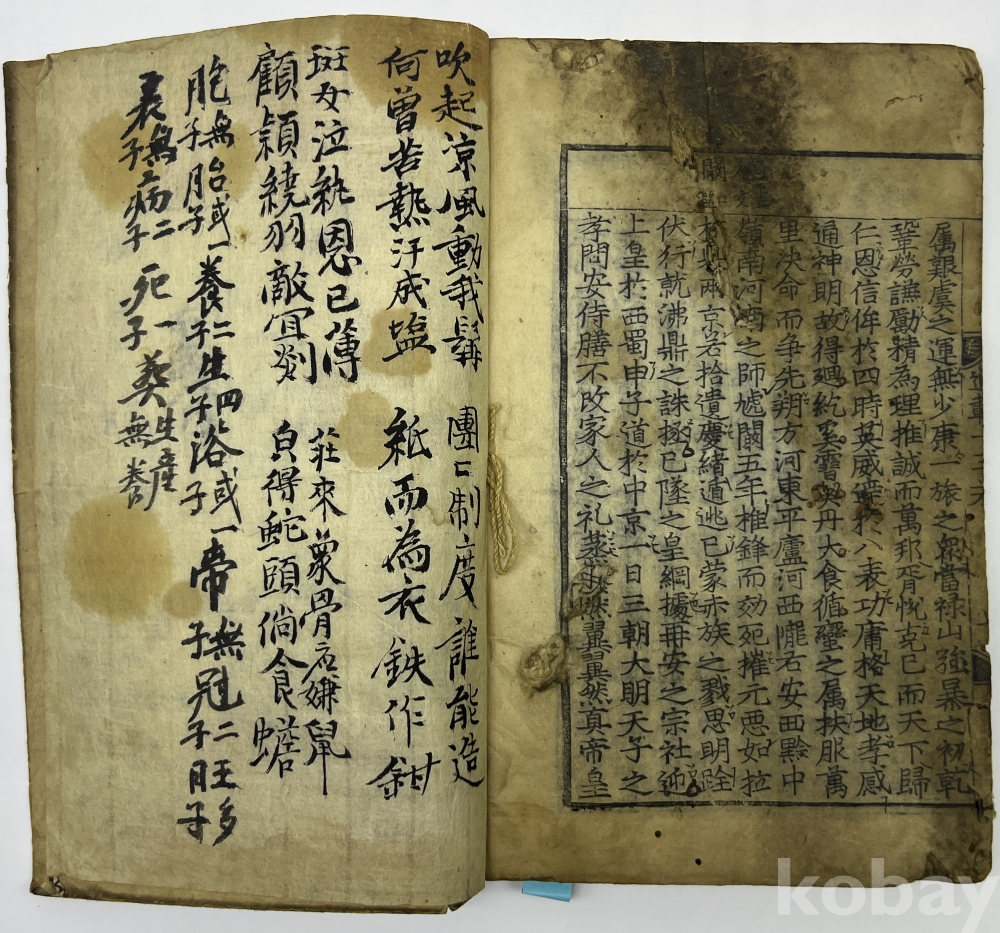 属艱虞之運無少康一旅之眾當禄山強暴之初乾
鞏勞謙勵精為理推誠而萬邦胥悅克己而天下歸
仁恩信侔於四時英威於八表功庸格天地孝感
通神明故得廻紇奚霫契丹大食循蠻之属扶服萬
里决命而争先朔方河東平盧河西隴右安西黔中
嶺南河南之師虓闞五年推鋒而効死摧元惡如拉
朽兩京若拾遺慶緒遁逃已蒙赤族之戮思明跧
伏行就沸鼎之誅極已墜之皇綱據再安之宗社迎
上皇於西蜀申子道於中京一日三朝大明天子之
孝問安侍膳不改家人之礼蒸蒸然翼翼然真帝皇
吹起涼風動我鬚 團〻制度誰能造
何曾苦熱汗成塩 紙而為衣鉄作鉗
班女泣紈恩已薄 莊來象骨名嫌
顧穎繞羽敵宜剡 得蛇頤倘食蟾
胞無子胎子或一養二子生四子浴子或一帝無子冠二子旺多子
衰無子病二子死一子葬無
kobay